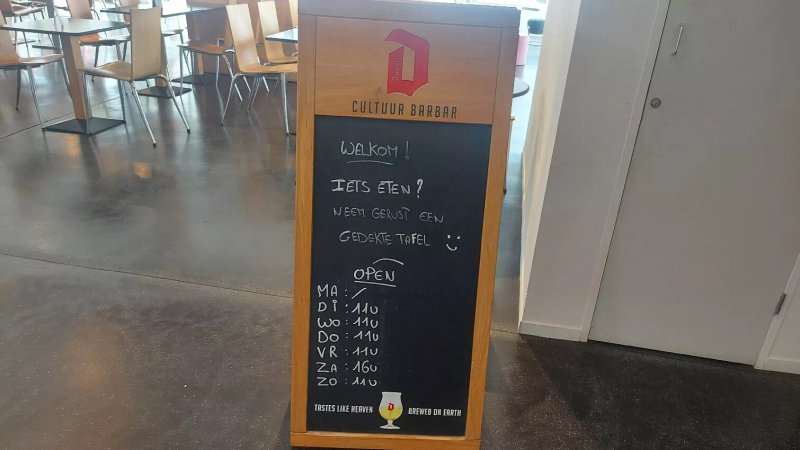 D
CULTUUR BARBAR
WELKOM!
IETS ETEN?
NEEM GERUST EEN
GEDEKTE TAFEL
OPEN
MA: /
DI: 11U
WO: 11U
DO: 11U
VR: 11U
ZA: 16U
ZO: 11U
TASTES LIKE HEAVEN BREWED ON EARTH